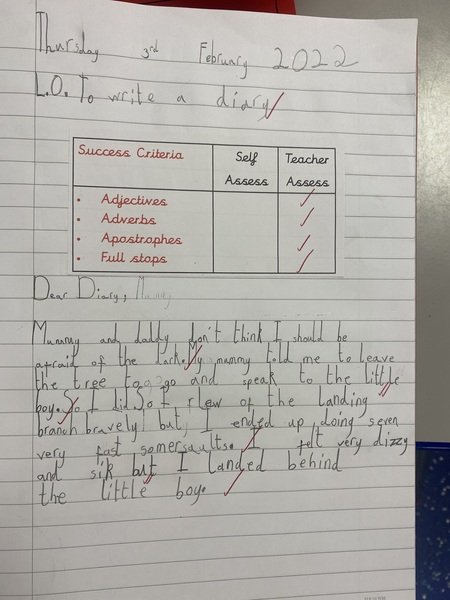 Thursday 3rd February 2022
L.O. To write a diary
Success Criteria
Self Assess
Teacher Assess
• Adjectives
• Adverbs
• Apostrophes
• Full stops
Dear Diary, Mummy
Mummy and daddy don't think I should be
afraid of the dark. My mummy told me to leave
the tree to go and speak to the little
boy. So I did So I flew of the landing
branch bravely but, I ended up doing seven
very fast somersaults. I felt very dizzy
and sik but I landed behind
the little boy.